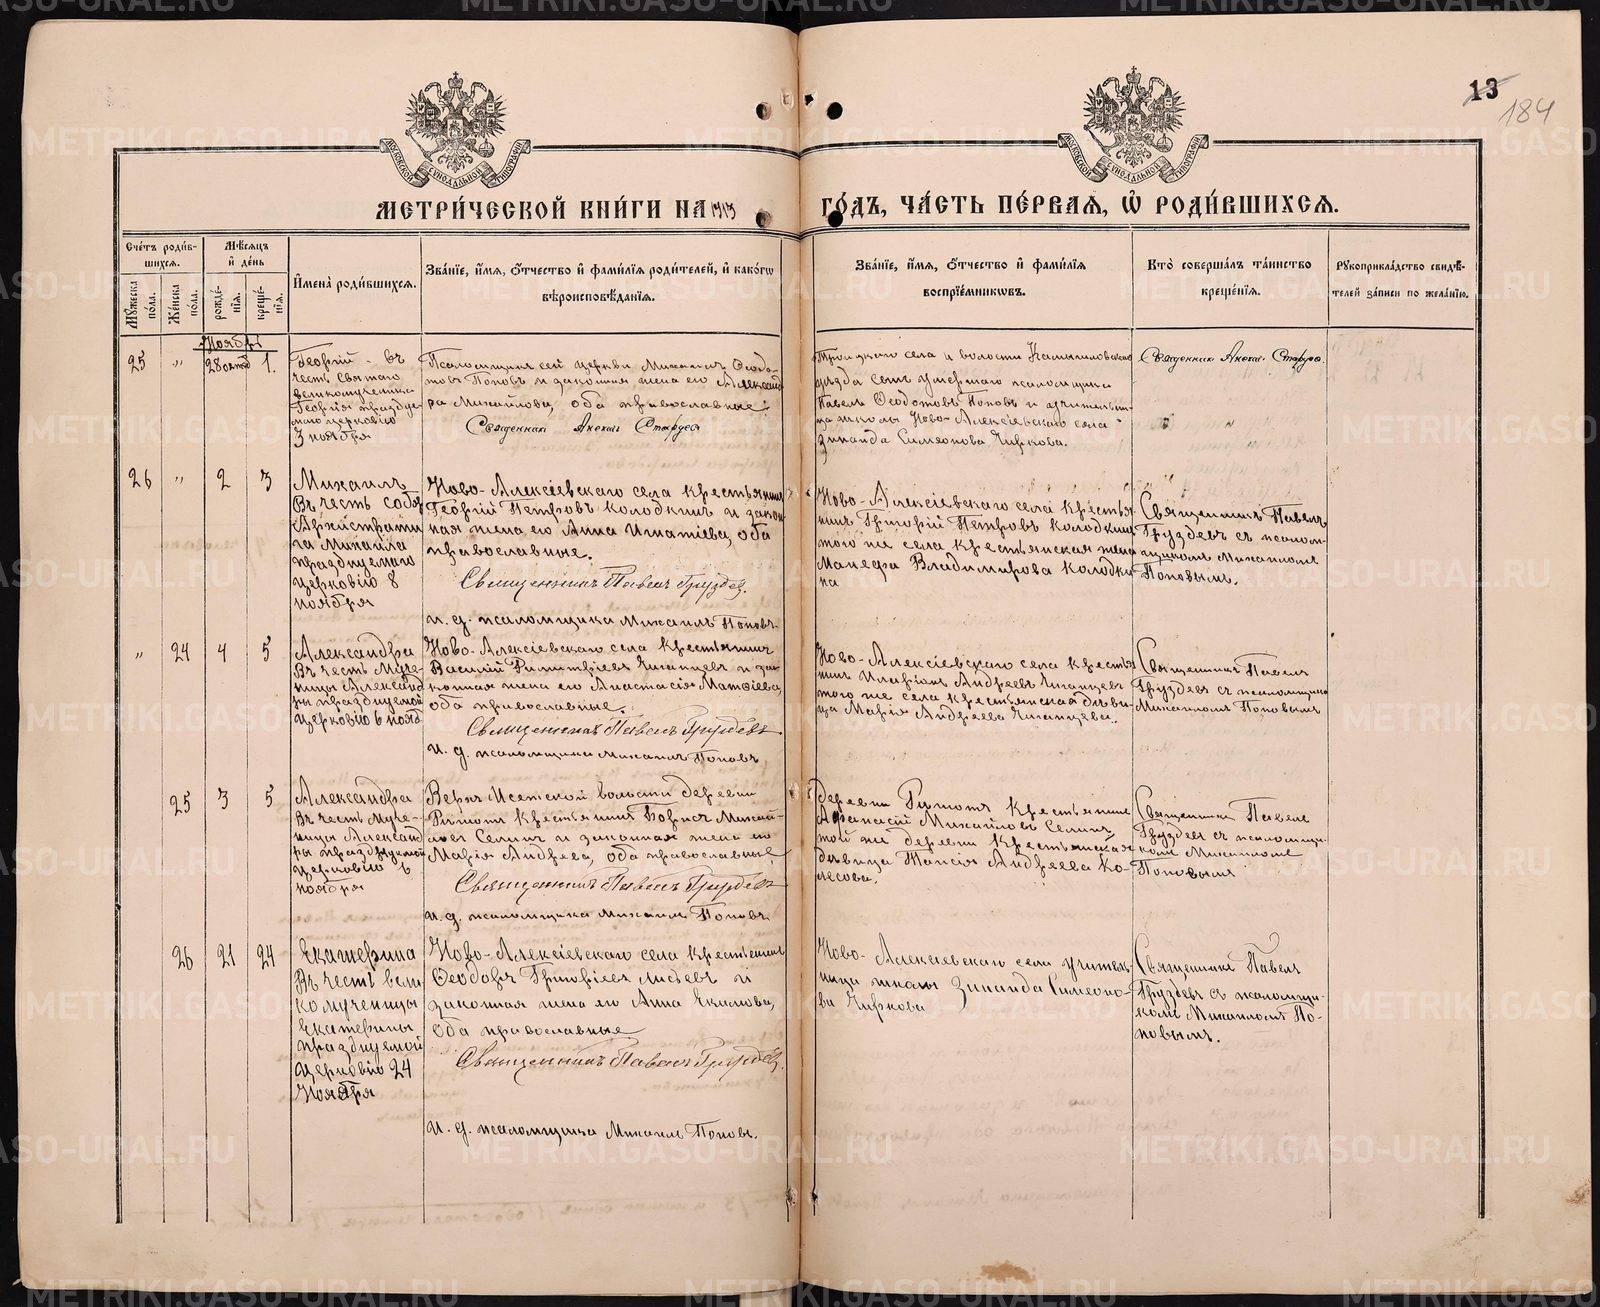 13
184
МЕТРИ́ЧЕСКОЙ КНИ́ГИ НА 1913 ГО́ДЪ, ЧА́СТЬ ПЕ́РВАЯ, Ѡ РОДИ́ВШИХСЯ.
Сче́тъ роди́в-
шихся.
Мꙋжеска по́ла.
Же́нска по́ла.
Мѣ́сяцъ и҆ де́нь
рожде́-
нія.
креще́-
нія.
И҆мена̀ роди́вшихся.
Зва́нїе, и҆́мя, ѻ҆́тчество и҆ фами́лїя роди́телей, и҆ како́гѡ
вѣроисповѣ́данїя.
Зва́нїе, и҆́мя, ѻ҆́тчество и҆ фами́лїя
воспрїе́мникѡвъ.
Кто̀ соверша́лъ та́инство
креще́нїя.
Рꙋкоприкла́дство свидѣ́-
телей за́писи по жела́нїю.
Ноябрь
25 „ 28 октяб 1.
Георгій - въ
честь Святаго
великомученика
Георгія празднуе-
маго церковію
3 ноября
Псаломщикъ сей церкви Михаилъ Ѳеодо-
товъ Поповъ и законная жена его Александ
ра Михайлова, оба православные.
Священник
Троицкаго села и волости Камышловскаго
уѣзда сынъ умершаго псаломщика
Павелъ Ѳеодотовъ Поповъ и учительни-
ца школы Ново-Алексіевскаго села
Зинаида Симеонова Чиркова.
Священник
26 „ 2 3
Михаилъ
Въ честь собора
Архистрати
га Михаила
празднуемаго
церковію 8
ноября
Ново-Алексіевскаго села крестьянинъ
Георгій Петровъ Колодкинъ и закон
ная жена его Анна Игнатіева, оба
православные.
Священникъ Павелъ Груздевъ.
и. д. псаломщика Михаилъ Поповъ.
Ново-Алексіевскаго села крестья
нинъ Григорій Петровъ Колодкинъ
того же села крестьянская жена
Манефа Владимирова Колодки
на
Священникъ Павелъ
Груздевъ съ псалом-
щикомъ Михаиломъ
Поповымъ.
„ 24 4 5
Александра
Въ честь муче-
ницы Александ
ры празднуемой
церковію 6 нояб
Ново-Алексіевскаго села крестьянинъ
Василій Димитріевъ и за-
конная жена его Анастасія Матѳіева,
оба православные.
Священникъ Павелъ Груздевъ
и. д. псаломщика Михаилъ Поповъ
Ново-Алексіевскаго села крестья
нинъ Иларіонъ Андреевъ
того же села крестьянская дѣви
ца Марія Андреева
Священникъ Павелъ
Груздевъ съ псаломщико
Михаиломъ Поповымъ
25 3 5
Александра
Въ честь муче-
ницы Александ
ры празднуемой
церковію 6
ноября
Верхъ Исетской волости деревни
Рѣшотъ крестьянинъ Борисъ Михай-
ловъ Селинъ и законная жена его
Марія Андреева, оба православные
Священникъ Павелъ Груздевъ
и. д. псаломщика Михаилъ Поповъ
деревни Рѣшотъ крестьянинъ
Аѳанасій Михайловъ Селинъ
той же деревни крестьянская
дѣвица Таисія Андреева Ко-
лесова.
Священникъ Павелъ
Груздевъ съ псаломщи-
комъ Михаиломъ
Поповымъ
26 21 24
Екатерина
Въ честь вели
комученицы
Екатерины
празднуемой
церковію 24
Ноября
Ново-Алексіевскаго села крестьянинъ
Ѳеодоръ Григоріевъ и
законная жена его Анна Екимова,
оба православные
Священникъ Павелъ Груздевъ
и. д. псаломщика Михаилъ Поповъ.
Ново-Алексіевскаго села учитель
ница школы Зинаида Симеоно-
ва Чиркова
Священникъ Павелъ
Груздевъ съ псаломщи-
комъ Михаиломъ По-
повымъ.
METRIKI.GASO-URAL.RU